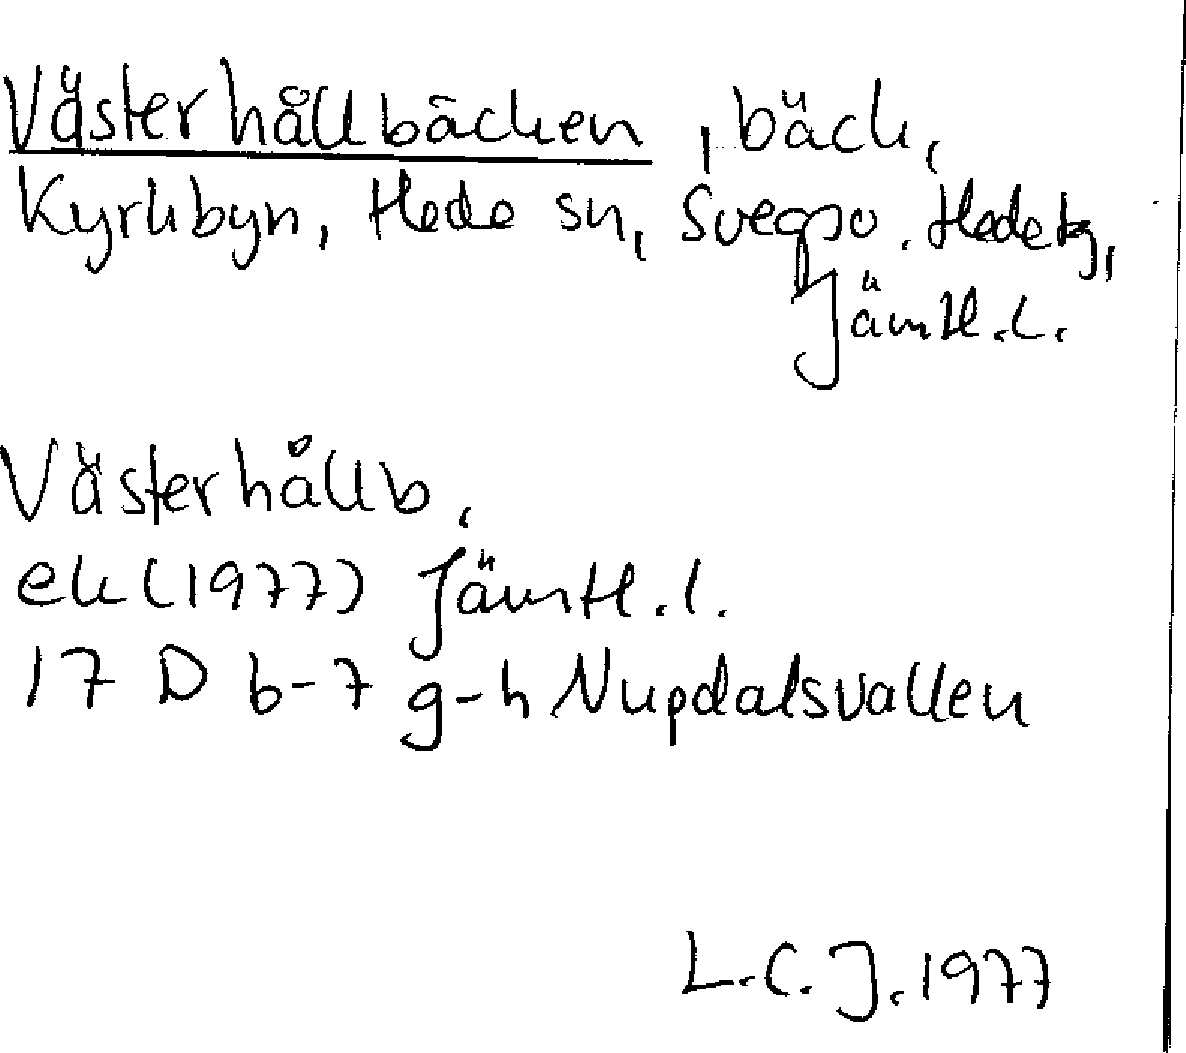 Västerhållbäcken, bäck,
Kyrkbyn, Hede sn, Svegs o. Hede tg,
Jämtl.l.
Västerhållb,
ek (1977) Jämtl.l.
17 D 6-7 g-h Nupdalsvallen
L.C.J. 1977